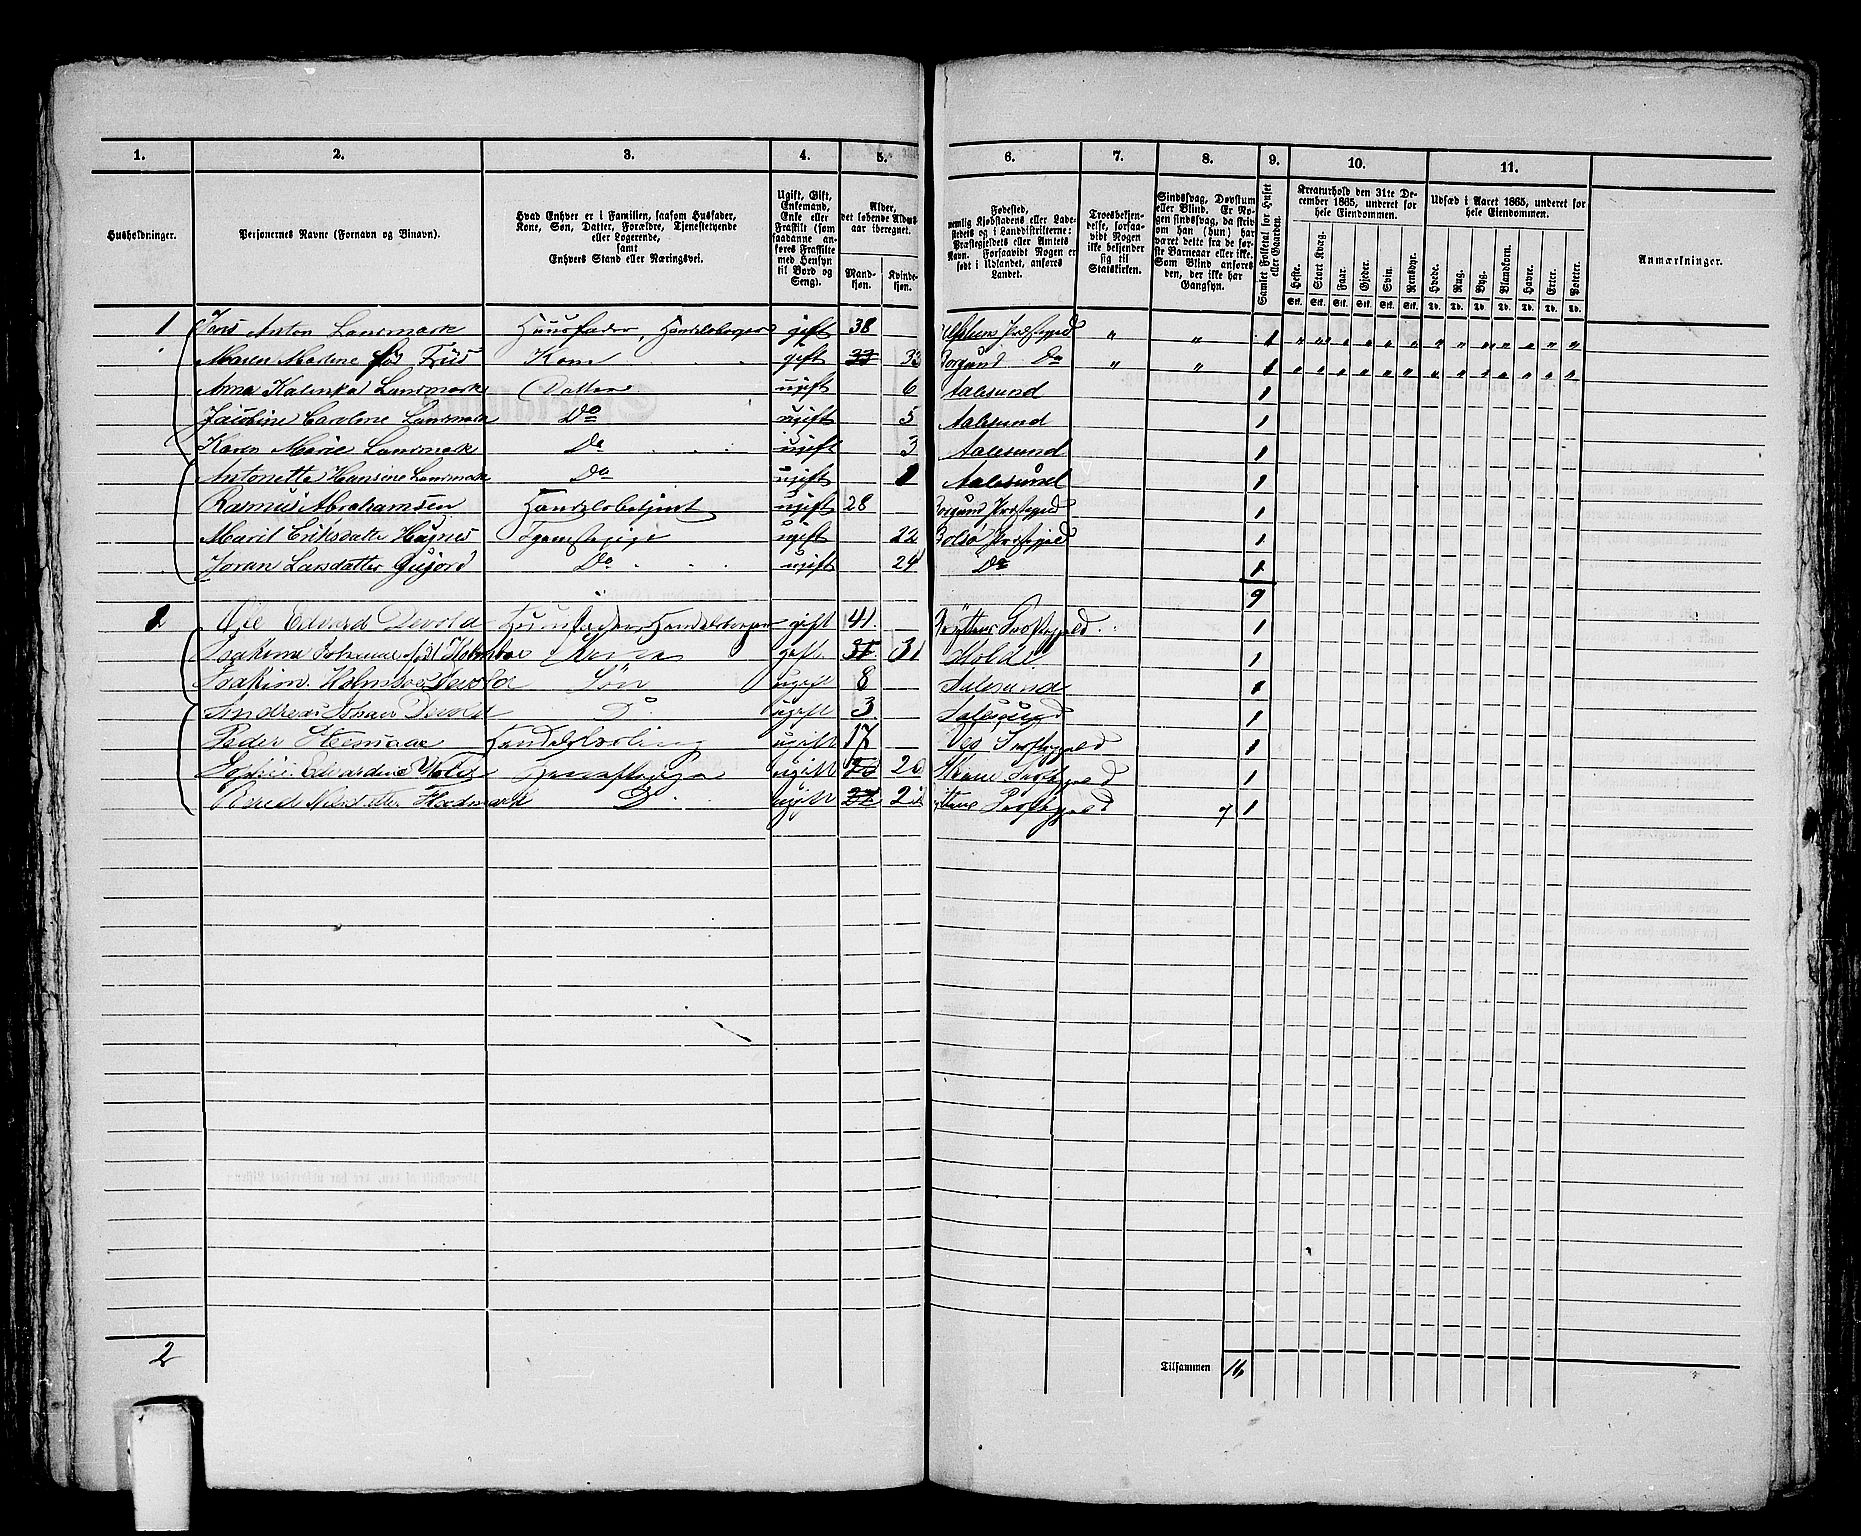 1. 2. 3. 4. 5. 6. 7. 8. 9. 10. 11.
Husholdninger.
Personernes Navne (Fornavn og Binavn).
Hvad Enhver er i Familien, saasom Husfader,
Kone, Søn, Datter, Forældre, Tjenestetyende
eller Logerende,
samt
Enhvers Stand eller Næringsvei.
Ugift, Gift,
Enkemand,
Enke eller
Fraskilt (som
saadanne an-
føres Fraskilte
med Hensyn
til Bord og
Seng).
Alder,
det løbende Alders-
aar iberegnet.
Mand-
kjøn.
Kvinde-
kjøn.
Fødested,
nemlig Kjøbstadens eller Lade-
stedets og i Landdistrikterne:
Præstegjeldets eller Amtets
Navn. Forsaavidt Nogen er
født i Udlandet, anføres
Landet.
Troesbekjen-
delse, forsaa-
vidt Nogen
ikke bekjender
sig til
Statskirken.
Sindssvag, Døvstum
eller Blind. Er No-
gen sindssvag, da skriv-
es om han (hun) har
været dette fra de før-
ste Barneaar eller ikke.
Som Blind anføres
den, der ikke har
Gangsyn.
Samlet Folketal for Huset
eller Gaarden.
Kreaturhold den 31te De-
cember 1865, underet for
hele Eiendommen.
Heste. Stort Kvæg. Faar. Gjeder. Svin. Rensdyr.
Stk. Stk. Stk. Stk. Stk. Stk.
Udsæd i Aaret 1865, underet for
hele Eiendommen.
Hvede. Rug. Byg. Blandkorn. Havre. Erter. Poteter.
Td. Td. Td. Td. Td. Td. Td.
Anmærkninger.
1 Jens Anton Landmark Huusfader, Handelsborger gift 38 Præstegjeld " " 1
Maren Madene fød Friis Kone gift 33 33 Borgund Do " " 1
Anna Kalinka Landmark Datter ugift 6 Aalesund 1
Jacobine Caroline Landmark Do ugift 5 Aalesund 1
Karen Marie Landmark Do ugift 3 Aalesund 1
Antonette Hansine Landmark Do ugift 1 Aalesund 1
Rasmus Abrahamsen Handelsbetjent ugift 28 Borgund Præstegjeld 1
Marit Eriksdatter Tjenestepige ugift 22 Bolsø Præstegjeld 1
Joran Larsdatter Do ugift 24 Do 1
9
2 Ole Edvard Devold Huusfader Handelsborger gift 41. Præstegjeld 1
Joakima Johanne født Holmboe Kone gift 31 31 Molde 1
Joakim Holmboe Devold Søn ugift 8 Aalesund 1
Andreas Devold Do ugift 3 Aalesund 1
Peder ugift 17 Præstegjeld 1
Edvardine ugift Præstegjeld 1
Berede Nilsdatter Do ugift Præstegjeld 7 1
2
Tilsammen 16